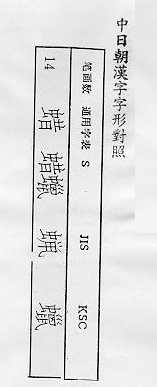 中日朝漢字字形對照
笔画数 通用字表 S JIS KSC
14 蜡 蜡蠟 蝋 蠟